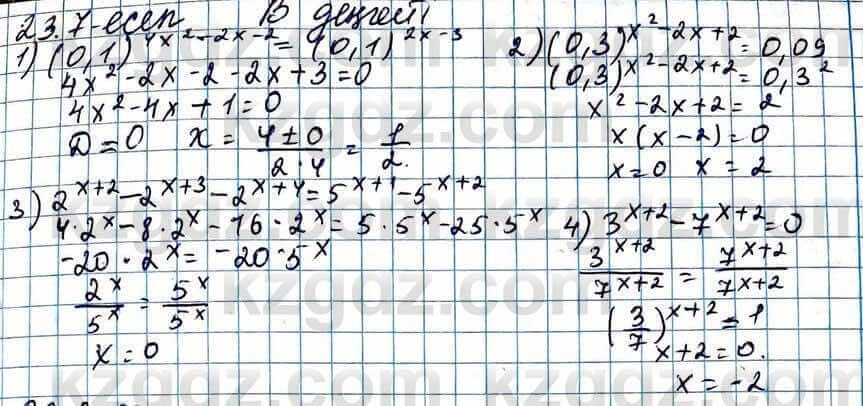 23.7-есеп В деңгейі
1) (0,1)^{4x²-2x-2} = (0,1)^{2x-3}
4x²-2x-2-2x+3=0
4x²-4x+1=0
D=0 x = \frac{4±0}{2·4} = \frac{1}{2}.
2) (0,3)^{x²-2x+2} = 0,09
(0,3)^{x²-2x+2} = 0,3²
x²-2x+2=2
x(x-2)=0
x=0 x=2
3) 2^{x+2}-2^{x+3}-2^{x+4}=5^{x+1}-5^{x+2}
4·2^x-8·2^x-16·2^x=5·5^x-25·5^x
-20·2^x=-20·5^x
\frac{2^x}{5^x} = \frac{5^x}{5^x}
x=0
4) 3^{x+2}-7^{x+2}=0
\frac{3^{x+2}}{7^{x+2}} = \frac{7^{x+2}}{7^{x+2}}
(\frac{3}{7})^{x+2}=1
x+2=0.
x=-2
kzgdz.com